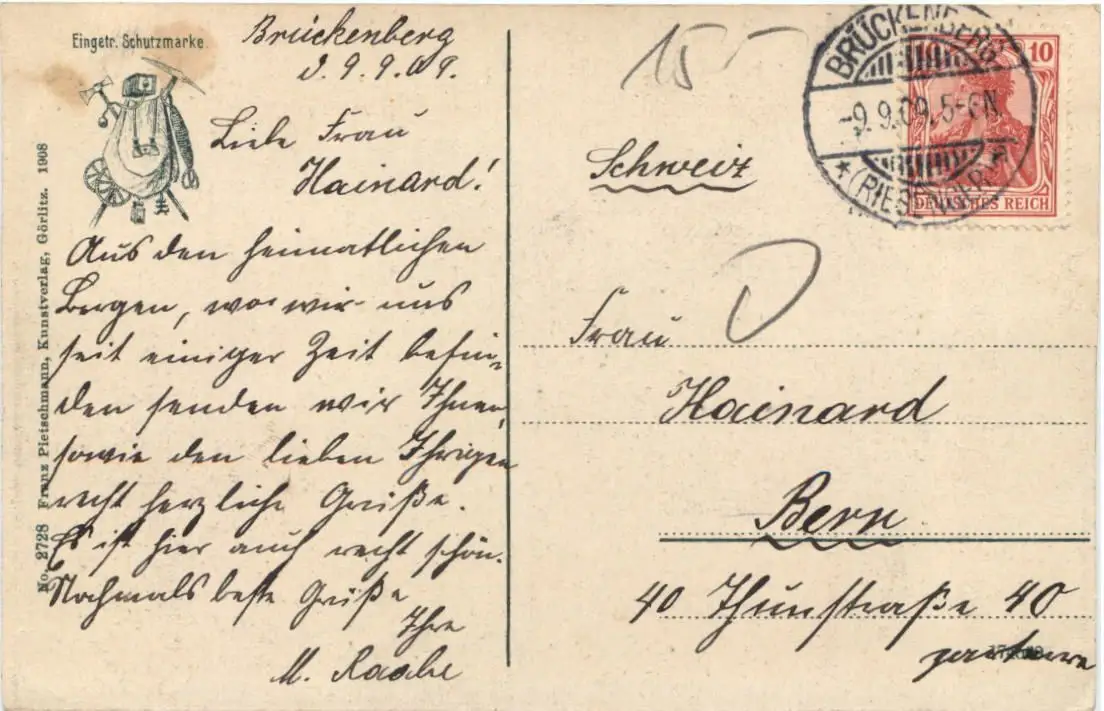 Eingetr. Schutzmarke.
Brückenberg
d. 9. 9. 09.
Liebe Frau
Hainard!
Aus den heimatlichen
Bergen, wo wir uns
seit einiger Zeit befin-
den senden wir Ihnen,
sowie den lieben Ihrigen
recht herzliche Grüße.
Es ist hier auch recht schön.
Nochmals beste Grüße
Ihre
M. Raabe
No. 2728 Franz Pietschmann, Kunstverlag, Görlitz. 1908
15 -
BRÜCKENBERG
-9. 9. 09. 5-6N
* (RIESENGEB.) *
10
DEUTSCHES REICH
Schweiz
Frau
Hainard
Bern
40 Thunstraße 40
parterre